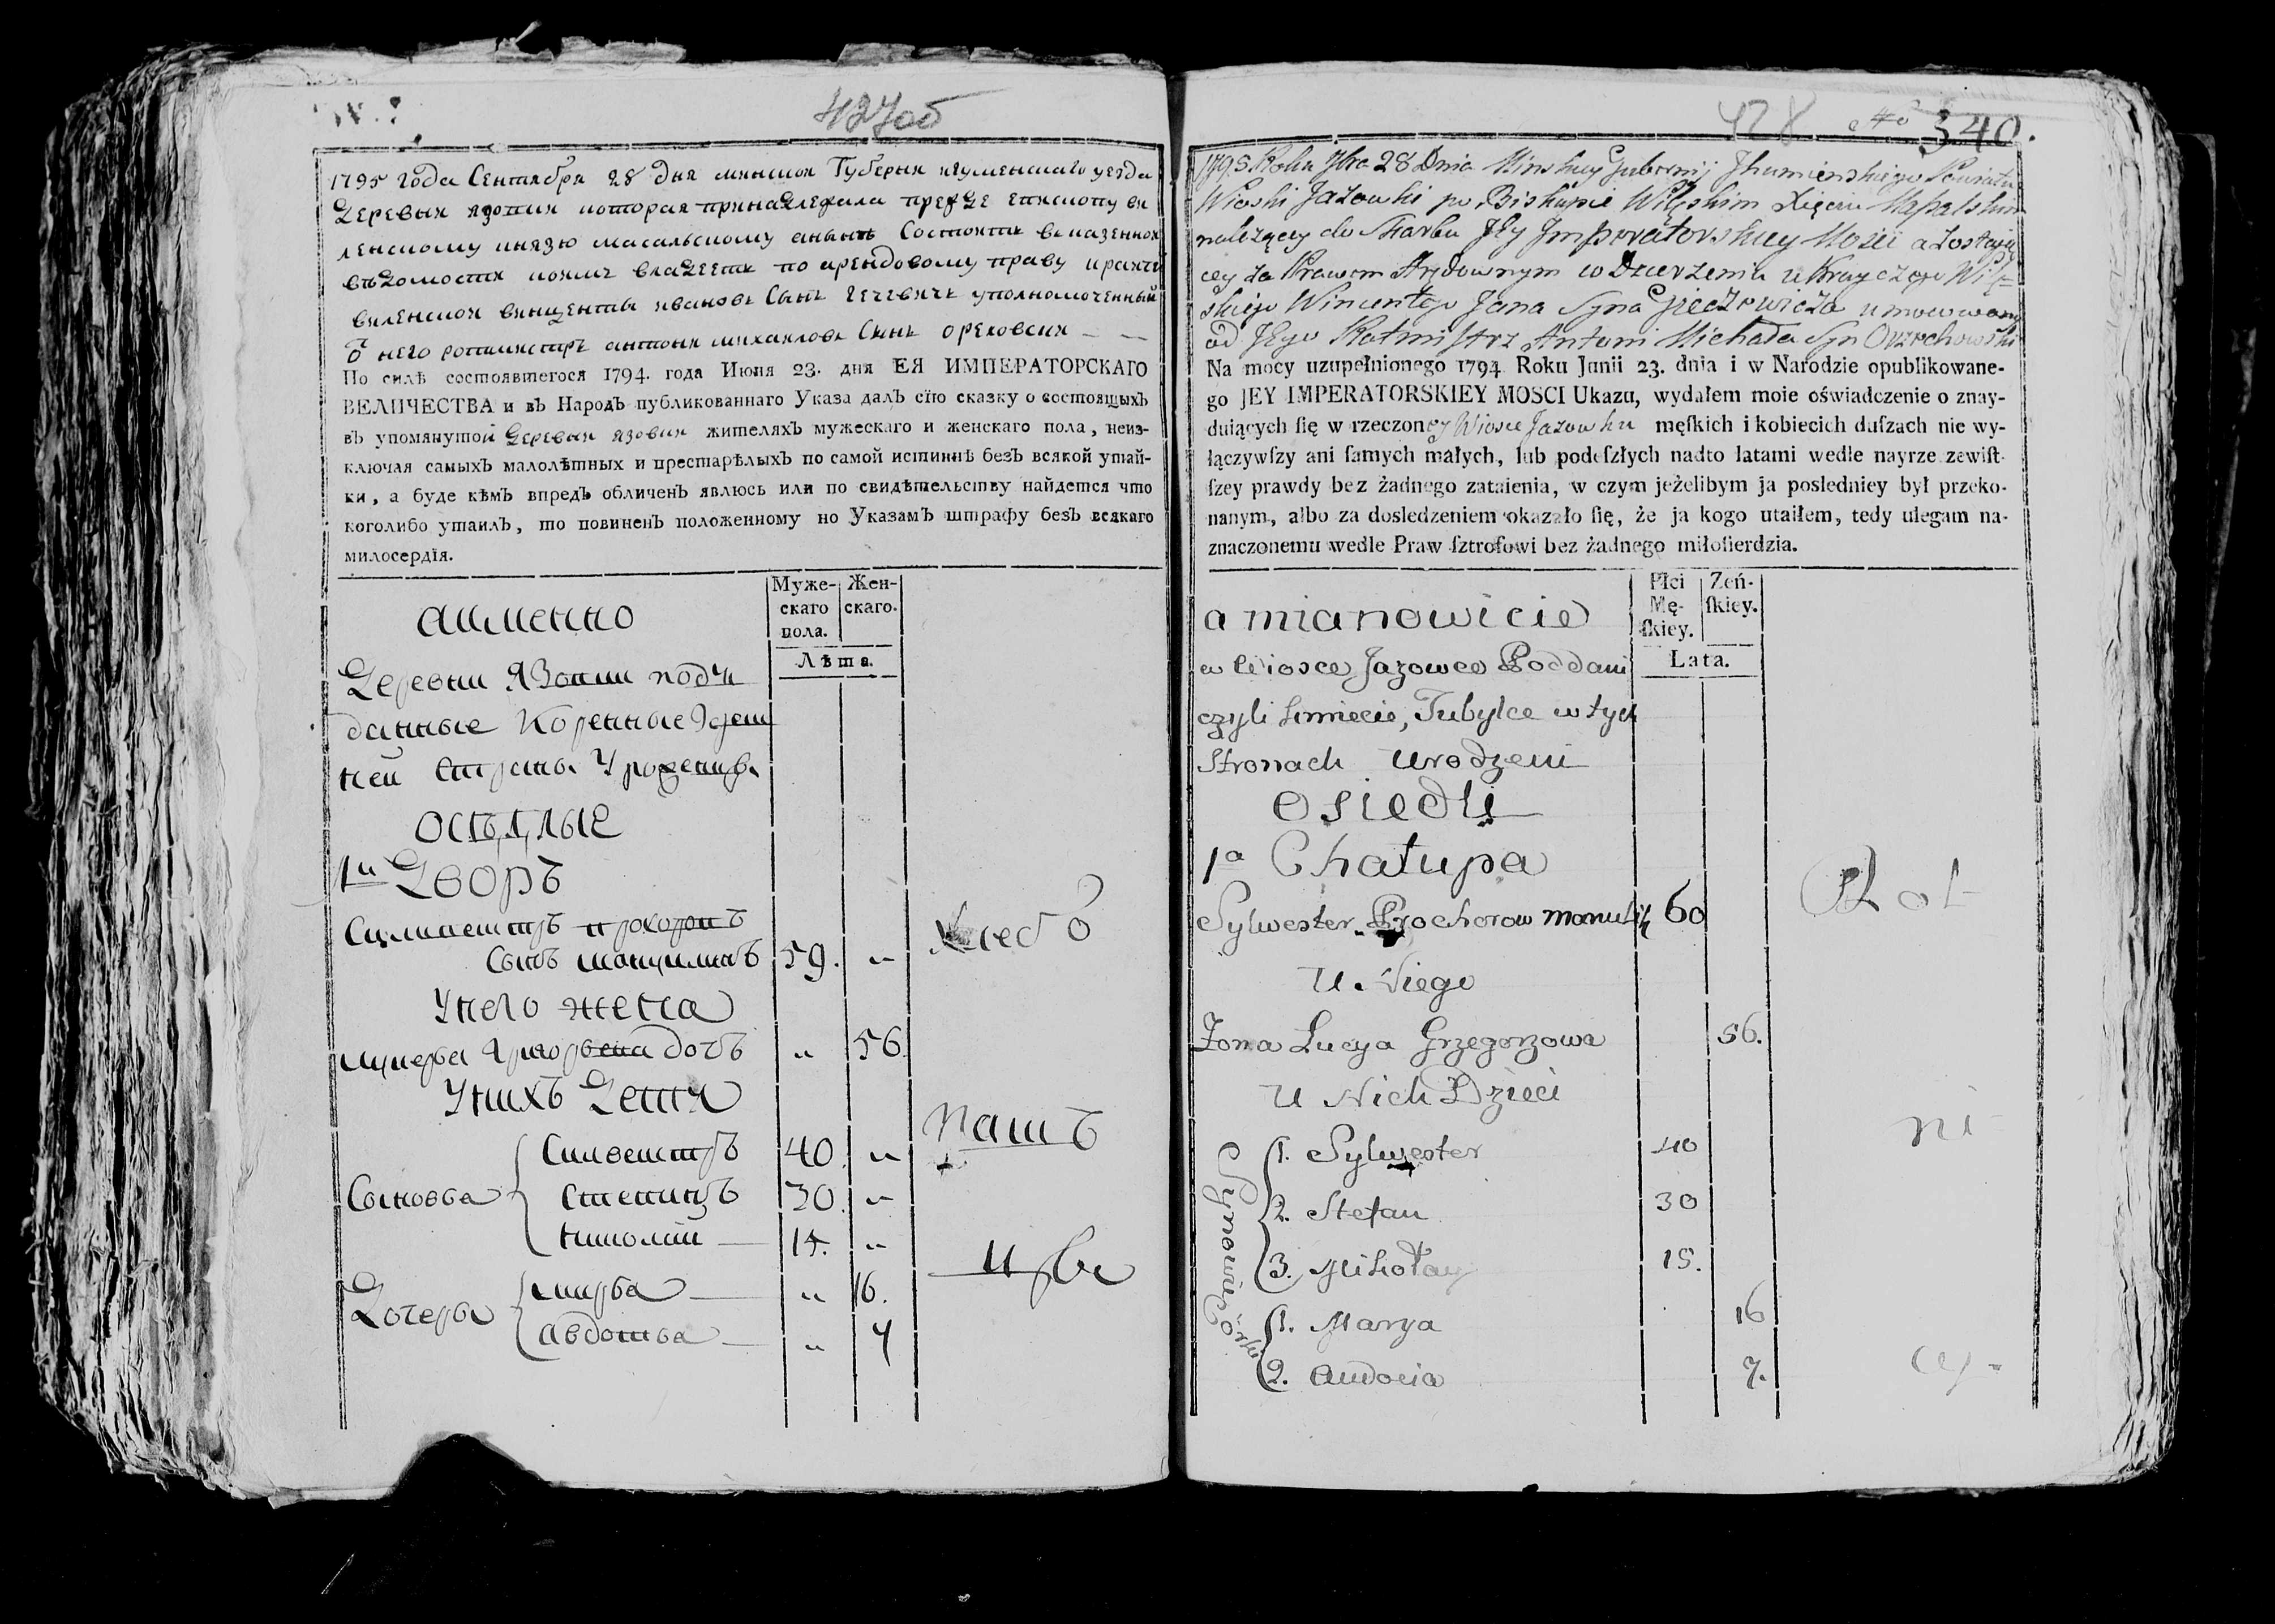 427об
1795 года Сентября 28 дня минской Губернии игуменскаго уезда
Деревни язовки которая принадлежала прежде епископу ви
ленскому князю масальскому а нынѣ Состоитъ въ казенной
вѣдомости коимъ владеетъ по арендовому праву крайчий
виленской винцентый ивановъ Сынъ гечевичъ уполномоченный
о него ротмистръ антоний михайловъ Сынъ ореховский
По силѣ состоявшегося 1794. года Июня 23. дня ЕЯ ИМПЕРАТОРСКАГО
ВЕЛИЧЕСТВА и въ Народъ публикованнаго Указа далъ сїю сказку о состоящыхъ
въ упомянутой Деревни язовки жителяхъ мужескаго и женскаго пола, неиз-
ключая самыхъ малолѣтныхъ и престарѣлыхъ по самой истиннѣ безъ всякой утай-
ки, а буде кѣмъ впредь обличенъ явлюсь или по свидѣтельству найдется что
коголибо утаилъ, то повиненъ положенному по Указамъ штрафу безъ всякаго
милосердїя.
Муже-
скаго
пола.
Жен-
скаго.
Лѣта.
аименно
Деревни Язовки подъ
данные Коренные
ней
оседлые
1й Дворъ
Сылвестръ прохоровъ
Сынъ 59. "
У него жена
Григорьева дочъ " 56.
У нихъ Дети
Сыновья
Силвестръ 40. "
Степанъ 30. "
николай 15. "
Дочеръи
марья " 16.
авдотья " 7
428 No 340.
1795 Roku 7bra 28 Dnia Minskiey Gubernij Jhumienskiego Powiatu
Wioski Jazowki po Biskupie Wileskim Xięciu Masalskim
należącey do Skarbu Jey Imperatorskiey Mości a zostaią
cey za Prawem Arędownym w Dzierżeniu u Krayczego Wile=
skiego Wincentego Jana Syna Gieczewicza umocowany
od Jego Rotmistrz Antoni Michała Syn Orzechowski
Na mocy uzupełnionego 1794 Roku Junii 23. dnia i w Narodzie opublikowane-
go JEY IMPERATORSKIEY MOSCI Ukazu, wydałem moie oświadczenie o znay-
duiących ſię w rzeczoney Wiosce Jazowku męſkich i kobiecich duſzach nie wy-
łączywſzy ani ſamych małych, lub podeſzłych nadto latami wedle nayrze zewiſt-
ſzey prawdy bez żadnego zataienia, w czym jeżelibym ja posledniey był przeko-
nanym, albo za dosledzeniem okazało ſię, że ja kogo utaiłem, tedy ulegam na-
znaczonemu wedle Praw ſztrofowi bez żadnego miłoſierdzia.
Płci
Mę-
ſkiey.
Zeń-
ſkiey.
Lata.
a mianowicie
w Wiosce Jazowce Poddani
czyli kmiecie, Tubylce w tych
Stronach Urodzeni
Osiedli
1a Chałupa
Sylwester Prochorow 60
U Niego
Żona Łucya Grzegorzowa 56.
U Nich Dzieci
Synowie
1. Sylwester 40
2. Stefan 30
3. Mikołay 15.
Corki
1. Marya 16
2. Audocia 7.